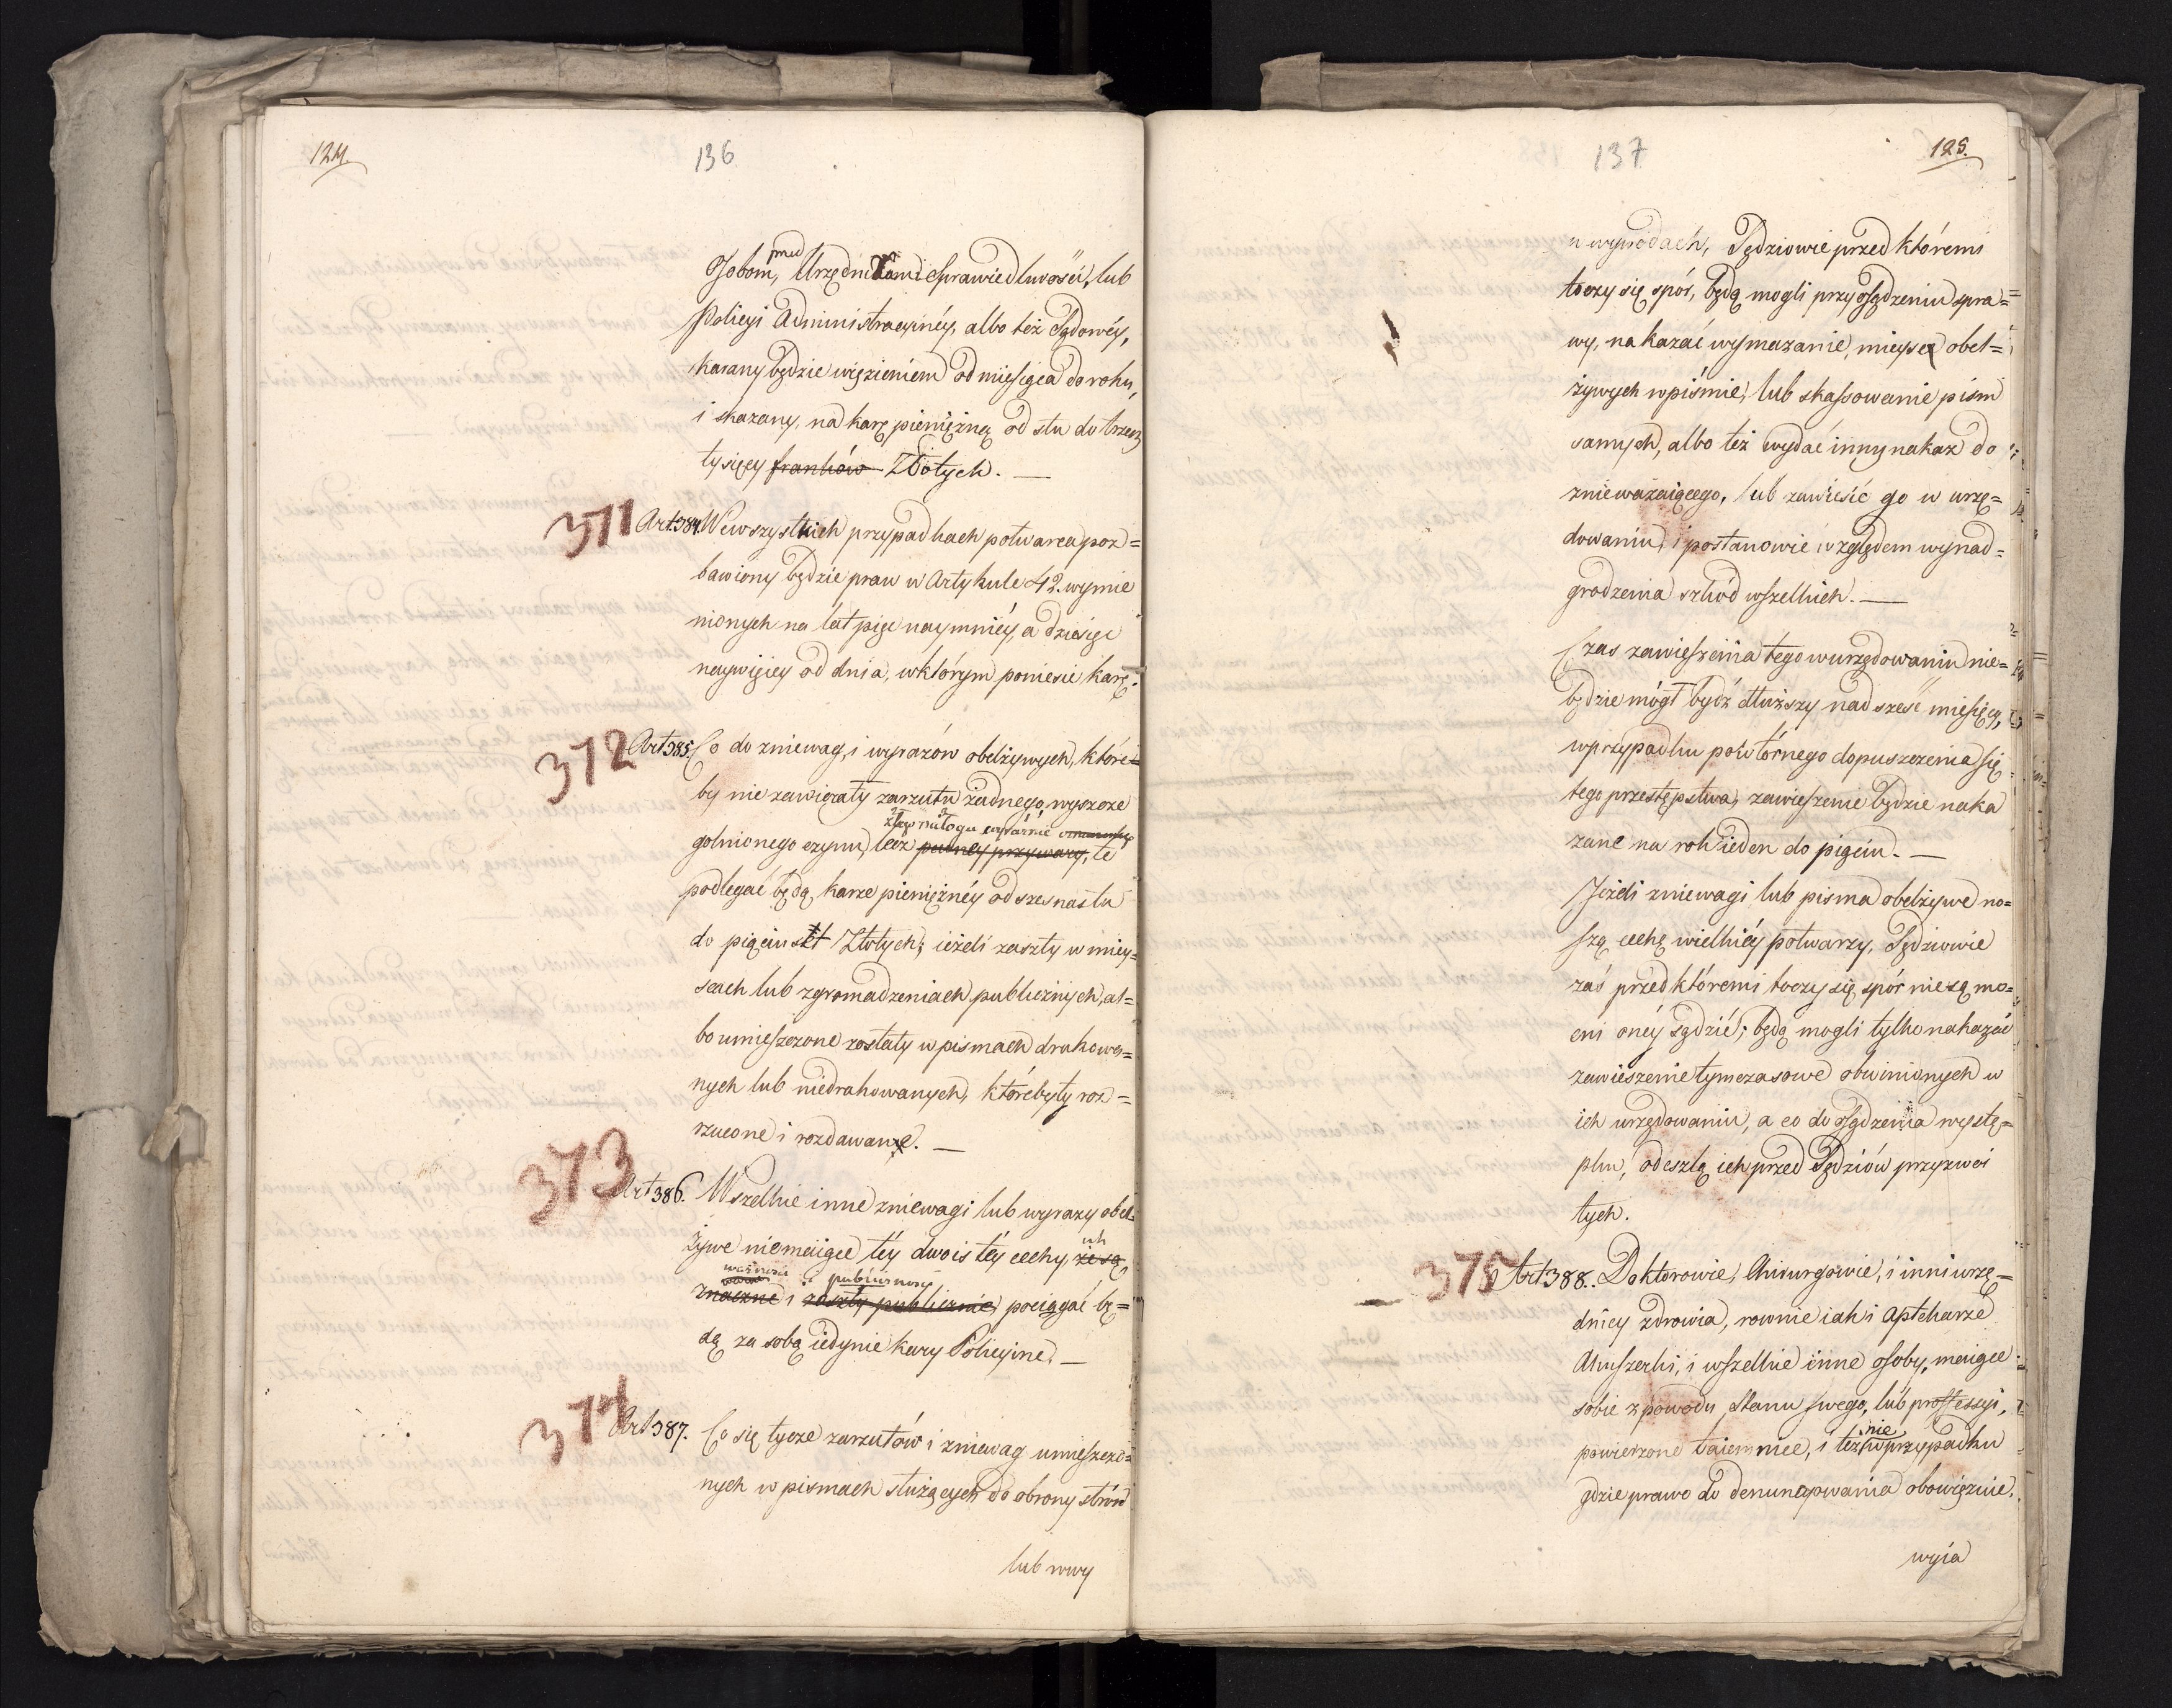 124.
136
Osobom, przed Urzędnikami Sprawiedliwości, lub
Policyi Administracyinéy, albo też Sądowéy,
karany będzie więzieniem od miesiąca do roku,
i skazany, na karę pieniężną od stu do trzech
tysięcy franków Złotych. —
371 Art: 384. We wszystkich przypadkach potwarca poz=
bawiony będzie praw w Artykule 42. wymie
nionych na lat pięć naymniéy, a dziesięć
naywięcey od dnia, w którym poniesie karę.
372 Art: 385. Co do zniewag, i wyrazów obelżywych, które=
by nie zawierały zarzutu żadnego, wyszcze
złego nałogu wyraźnie
gólnionego czynu, lecz pewney przywary, te
podlegać będą, karze pieniężnéy od szesnastu
do pięciuset Złotych; ieżeli zaszły w miey=
scach lub zgromadzeniach publicznych, al=
bo umieszczone zostały w pismach drukowa=
nych lub niedrukowanych, które były roz=
rzucone i rozdawane. —
373 Art 386. Wszelkie inne zniewagi lub wyrazy obel=
żywe niemaiące téy dwoistéy cechy, że są
ważności i publiczności
znaczne i zaszły publicznie, pociągać bę=
dą za sobą iedynie kary Policyine. —
374 Art 387. Co się tycze zarzutów i zniewag umieszczo=
nych w pismach służących do obrony stron
lub w wy
137
125.
w wywodach, Sędziowie przed któremi
toczy się spór, będą mogli przy osądzeniu spra=
wy, nakazać wymazanie, mieysc obel=
żywych w piśmie, lub skassowanie pism
samych, albo też wydać inny nakaz do
znieważaiącego, lub zawiesić go w urzę=
dowaniu, i postanowić względem wynad=
grodzenia szkód wszelkich. —
Czas zawieszenia tego w urzędowaniu nie=
będzie mógł bydź dłuższy nad sześć miesięcy,
w przypadku powtórnego dopuszczenia się
tego przestępstwa, zawieszenie będzie naka
zane na rok ieden do pięciu. —
Jeżeli zniewagi lub pisma obelżywe no=
szą cechę wielkiéy potwarzy, Sędziowie
zaś przed któremi toczy się spór nie są mo=
cni onéy sądzić; będą mogli tylko nakazać
zawieszenie tymczasowe obwinionych w
ich urzędowaniu, a co do osądzenia wystę=
pku, odeszlą ich przed Sędziów przyzwoi
tych.
375 Art 388. Doktorowie, Chirurgowie, i inni urzę=
dnicy zdrowia, rownie iak i Aptekarze
Akuszerki, i wszelkie inne osoby, maiące
sobie z powodu stanu swego, lub professyi,
powierzone taiemnice, i też nie w przypadku
gdzie prawo do denuncyowania obowiązuie,
wyia